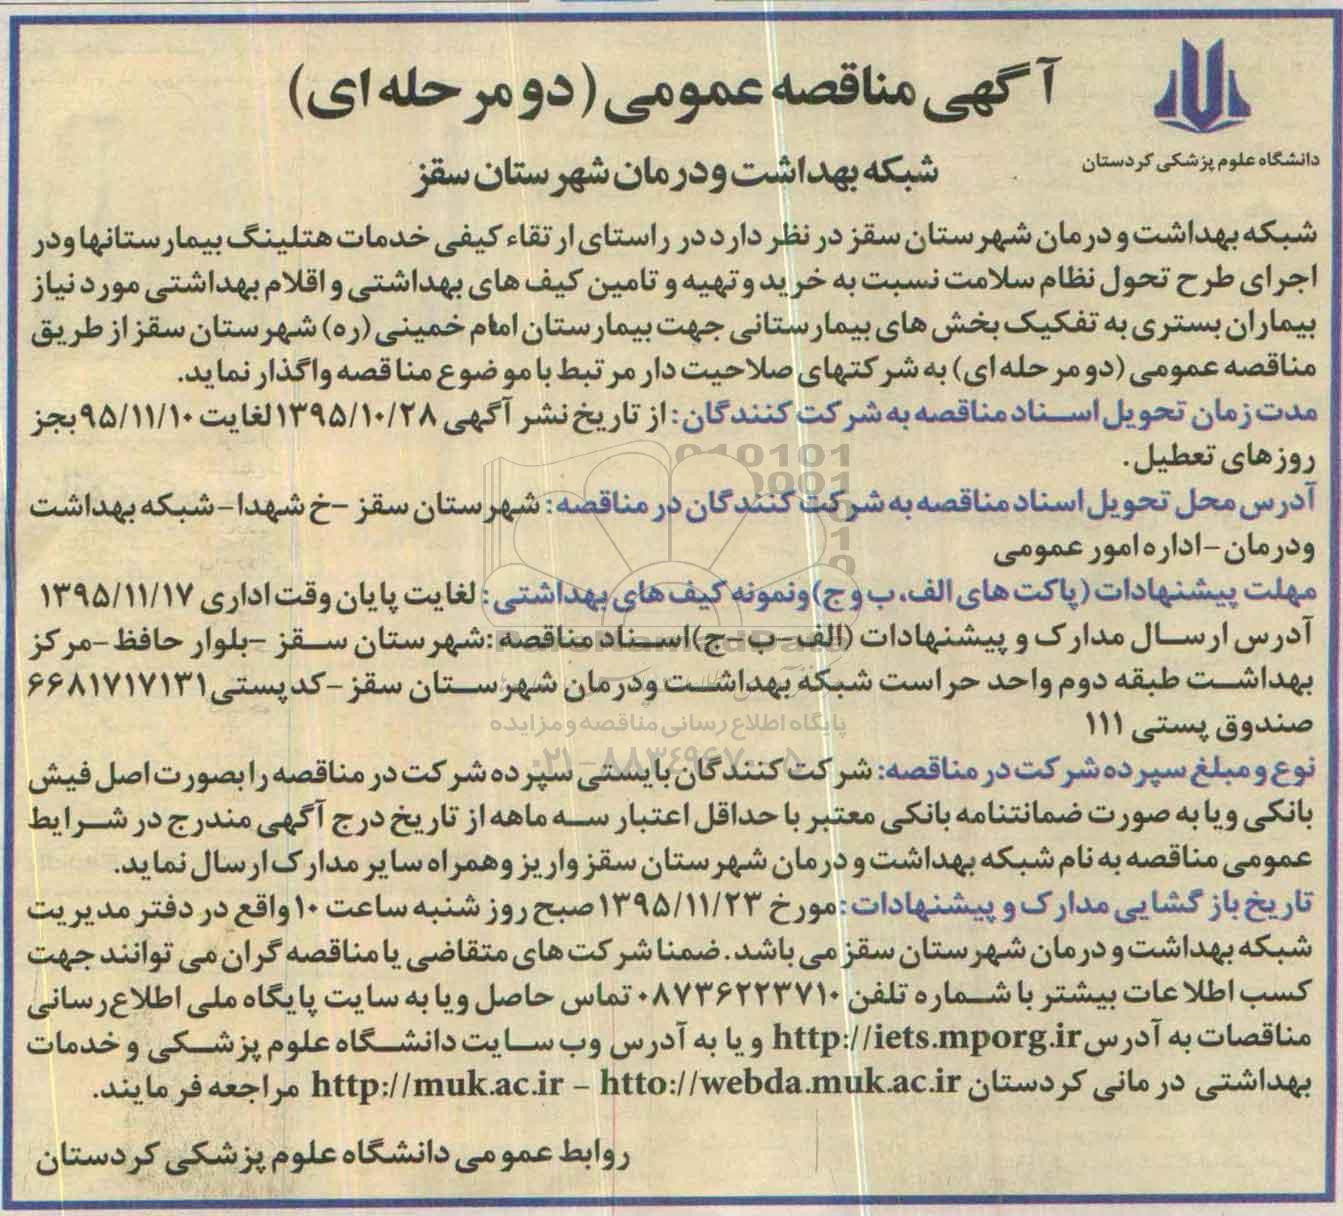 آگهی مناقصه عمومی (دو مرحله ای)
دانشگاه علوم پزشکی کردستان
شبکه بهداشت ودرمان شهرستان سقز
شبکه بهداشت و درمان شهرستان سقز در نظر دارد در راستای ارتقاء کیفی خدمات هتلینگ بیمارستانها ودر
اجرای طرح تحول نظام سلامت نسبت به خرید و تهیه و تامین کیف های بهداشتی و اقلام بهداشتی مورد نیاز
بیماران بستری به تفکیک بخش های بیمارستانی جهت بیمارستان امام خمینی (ره) شهرستان سقز از طریق
مناقصه عمومی (دو مرحله ای) به شرکتهای صلاحیت دار مرتبط با موضوع مناقصه واگذار نماید.
مدت زمان تحویل اسناد مناقصه به شرکت کنندگان: از تاریخ نشر آگهی ۱۳۹۵/۱۰/۲۸ لغایت ۹۵/۱۱/۱۰ بجز
روزهای تعطیل.
آدرس محل تحویل اسناد مناقصه به شرکت کنندگان در مناقصه: شهرستان سقز -خ شهدا- شبکه بهداشت
ودرمان - اداره امور عمومی
مهلت پیشنهادات (پاکت های الف، ب و ج) ونمونه کیف های بهداشتی: لغایت پایان وقت اداری ۱۳۹۵/۱۱/۱۷
آدرس ارسال مدارک و پیشنهادات (الف-ب-ج) اسناد مناقصه: شهرستان سقز -بلوار حافظ -مرکز
بهداشت طبقه دوم واحد حراست شبکه بهداشت ودرمان شهرستان سقز - کدپستی ۶۶۸۱۷۱۷۱۳۱
صندوق پستی ۱۱۱
پایگاه اطلاع رسانی مناقصه و مزایده
۰۲۱-۸۸۳۴۹۶۷۰-۵
نوع و مبلغ سپرده شرکت در مناقصه: شرکت کنندگان بایستی سپرده شرکت در مناقصه را بصورت اصل فیش
بانکی ویا به صورت ضمانتنامه بانکی معتبر با حداقل اعتبار سه ماهه از تاریخ درج آگهی مندرج در شرایط
عمومی مناقصه به نام شبکه بهداشت و درمان شهرستان سقز واریز وهمراه سایر مدارک ارسال نماید.
تاریخ بازگشایی مدارک و پیشنهادات: مورخ ۱۳۹۵/۱۱/۲۳ صبح روز شنبه ساعت ۱۰ واقع در دفتر مدیریت
شبکه بهداشت و درمان شهرستان سقز می باشد. ضمنا شرکت های متقاضی یا مناقصه گران می توانند جهت
کسب اطلاعات بیشتر با شماره تلفن ۰۸۷۳۶۲۲۳۷۱۰ تماس حاصل ویا به سایت پایگاه ملی اطلاع رسانی
مناقصات به آدرس http://iets.mporg.ir و یا به آدرس وب سایت دانشگاه علوم پزشکی و خدمات
بهداشتی درمانی کردستان http://muk.ac.ir - htto://webda.muk.ac.ir مراجعه فرمایند.
روابط عمومی دانشگاه علوم پزشکی کردستان